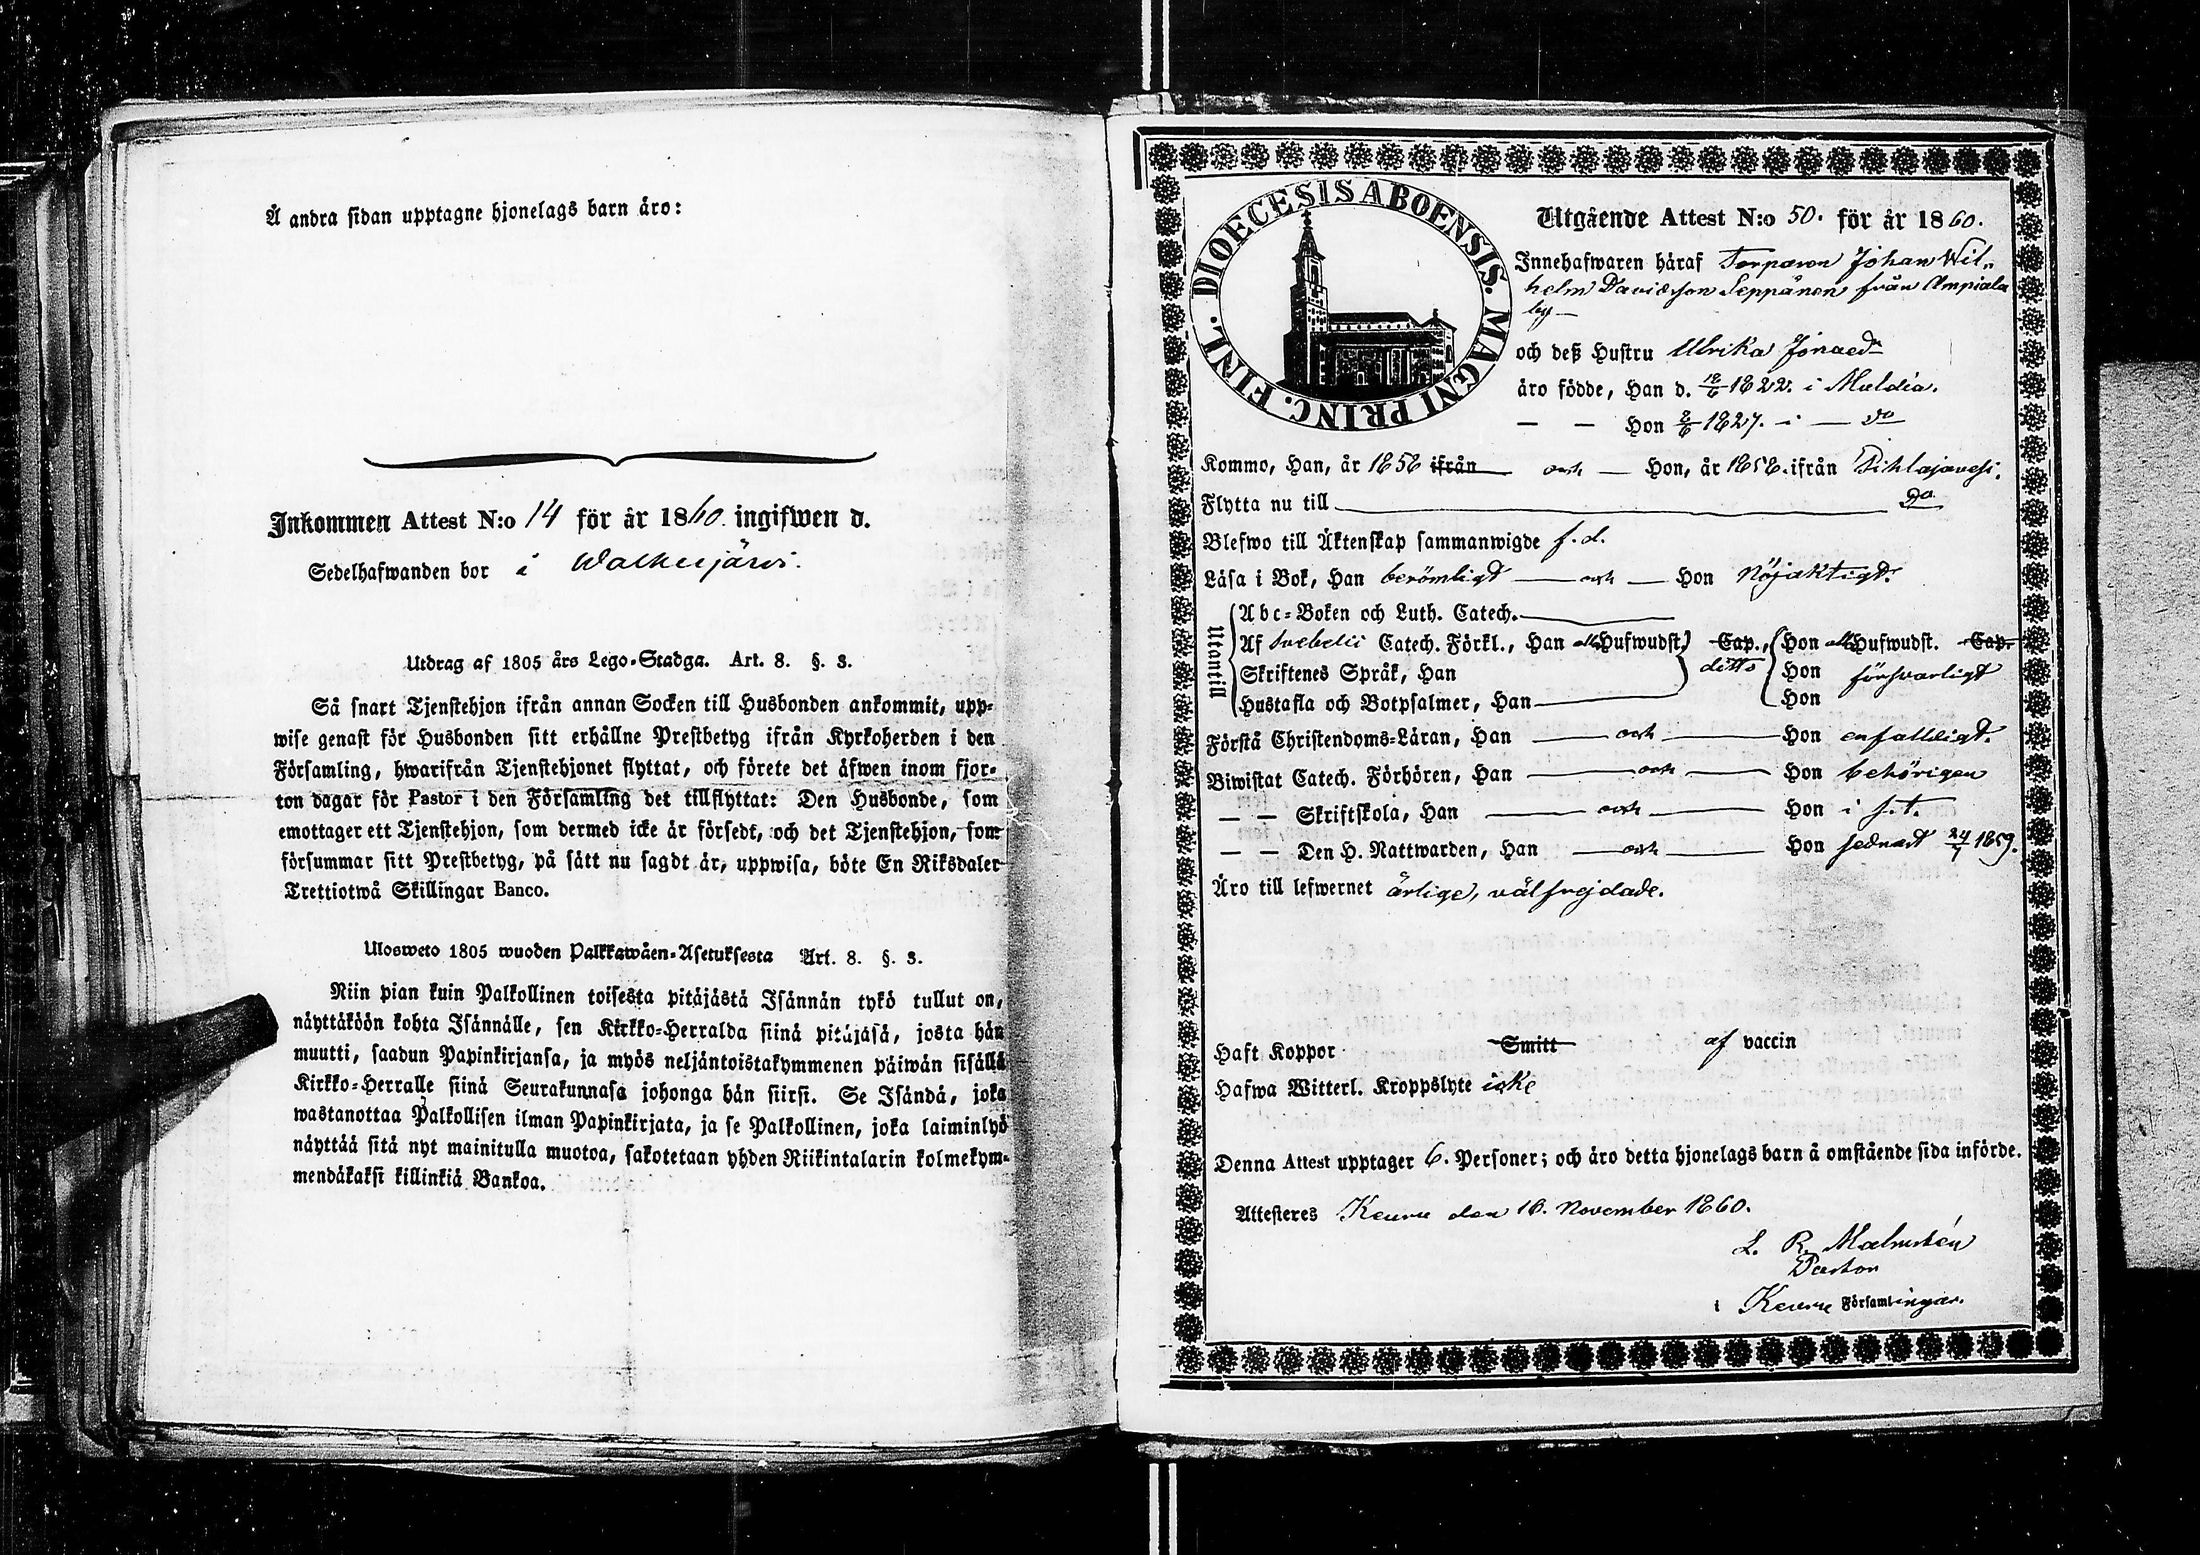 Å andra sidan upptagne hjonelags barn äro:
Inkommen Attest N:o 14 för år 1860. ingifwen d.
Sedelhafwanden bor i Walkerjärvi.
Utdrag af 1805 års Lego-Stadga. Art. 8. §. 3.
Så snart Tjenstehjon ifrån annan Socken till Husbonden ankommit, upp-
wise genast för Husbonden sitt erhållne Prestbetyg ifrån Kyrkoherden i den
Församling, hwarifrån Tjenstehjonet flyttat, och förete det äfwen inom fjor-
ton dagar för Pastor i den Församling det tillflyttat: Den Husbonde, som
emottager ett Tjenstehjon, som dermed icke är försedt, och det Tjenstehjon, som
försummar sitt Prestbetyg, på sätt nu sagdt är, uppwisa, böte En Riksdaler
Trettiotwå Skillingar Banco.
Ulosweto 1805 wuoden Palkkawäen-Asetuksesta Art. 8. §. 3.
Niin pian kuin Palkollinen toisesta pitäjästä Isännän tykö tullut on,
näyttäköön kohta Isännälle, sen Kirkko-Herralda siinä pitäjäsä, josta hän
muutti, saadun Papinkirjansa, ja myös neljäntoistakymmenen päiwän sisällä
Kirkko-Herralle siinä Seurakunnasa johonga hän siirsi. Se Isändä, joka
wastanottaa Palkollisen ilman Papinkirjata, ja se Palkollinen, joka laiminlyö
näyttää sitä nyt mainitulla muotoa, sakotetaan yhden Riikintalarin kolmekym-
mendäkaksi killinkiä Bankoa.
DIOECESIS ABOENSIS. MAGNI PRINC. FINL.
Utgående Attest N:o 50. för år 1860.
Innehafwaren häraf Torparen Johan Wil-
helm Davidsson Seppänen från Ampiala
by
och deß Hustru Ulrika Jonaedr
äro födde, Han d. 18/6 1822. i Muldia.
— — Hon 2/6 1827. i — do
Kommo, Han, år 1858 ifrån och — Hon, år 1858. ifrån Pihlajavesi.
Flytta nu till do
Blefwo till Äktenskap sammanwigde f. d.
Läsa i Bok, Han berömligt — och — Hon Nöjaktigt.
Utantill
Abc-Boken och Luth. Catech.
Af Svebelii Catech. Förkl., Han alla Hufwudst. Cap., Hon alla Hufwudst. Cap.
Skriftenes Språk, Han ditto Hon försvarligt
Hustafla och Botpsalmer, Han Hon
Förstå Christendoms-Läran, Han — och — Hon enfalldigt.
Biwistat Catech. Förhören, Han — och — Hon behörigen
— — Skriftskola, Han — och — Hon i s. t.
— — Den H. Nattwarden, Han — och — Hon sednast 24/7 1859.
Äro till lefwernet ärlige, välfrejdade.
Haft Koppor Smitt af vaccin
Hafwa Witterl. Kroppslyte icke
Denna Attest upptager 6. Personer; och äro detta hjonelags barn å omstående sida införde.
Attesteres Keuru den 16. November 1860.
L. R. Malmstén
Pastor
i Keuru Församlingar.